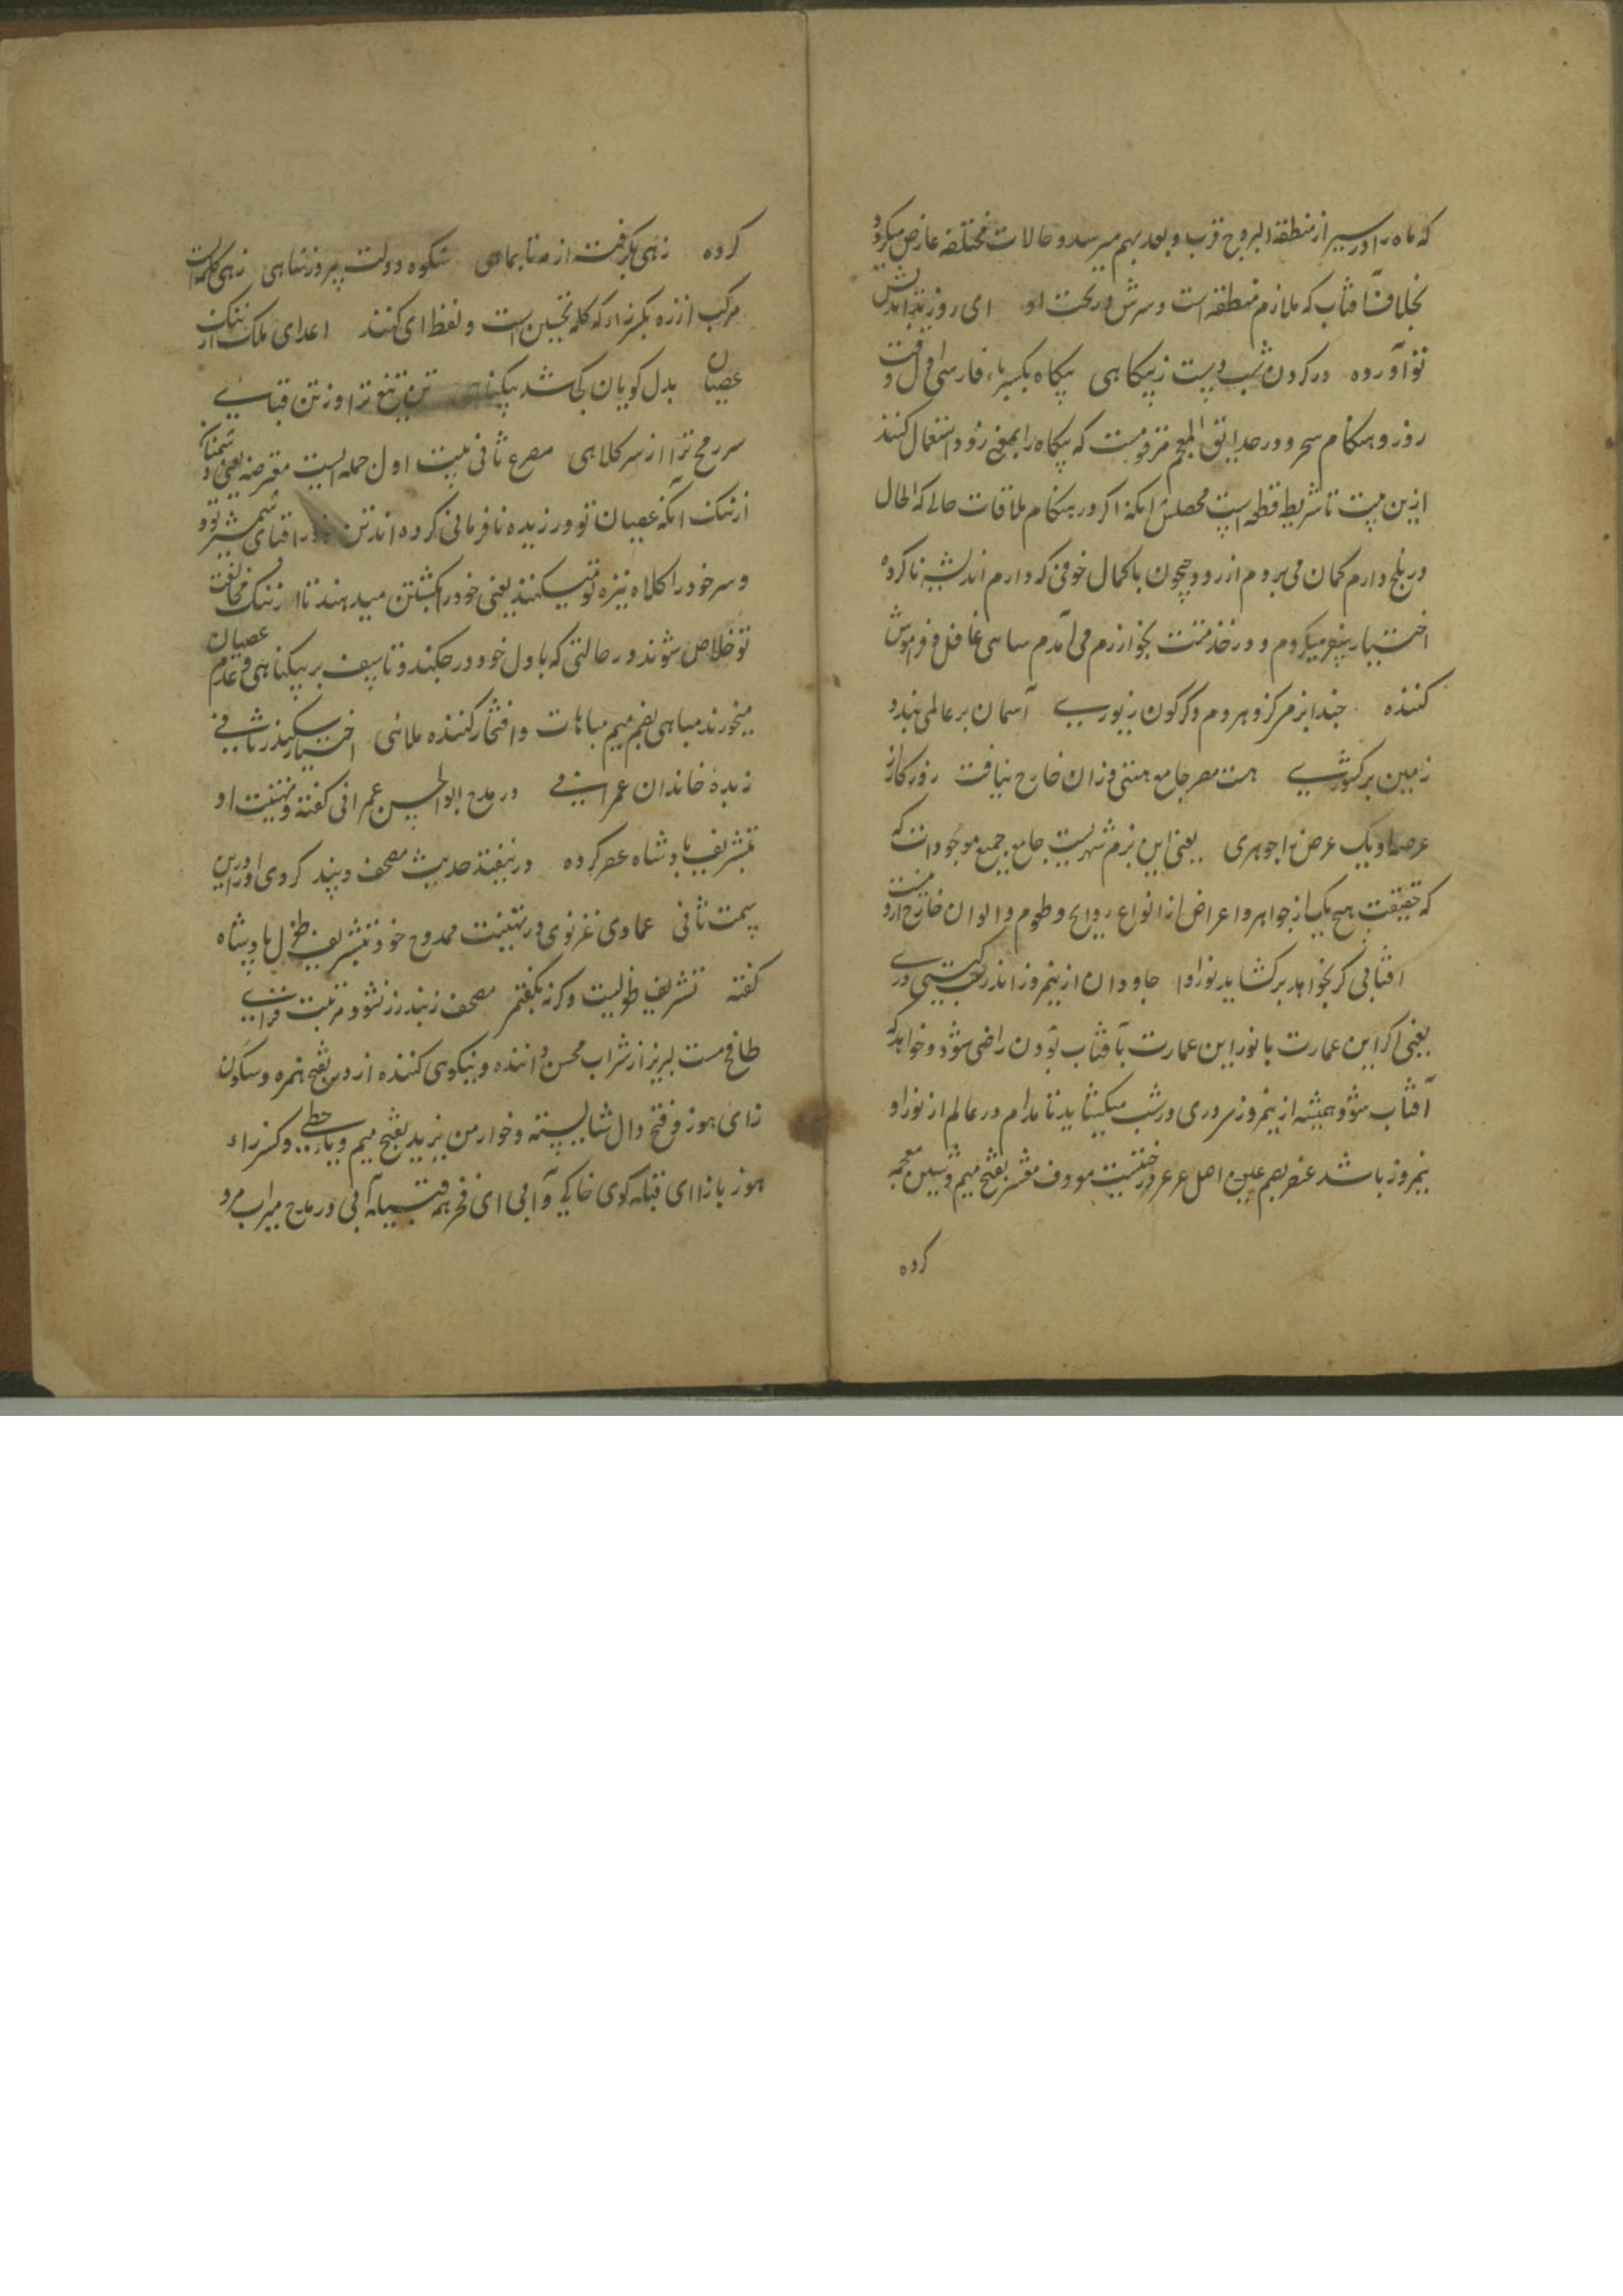 که ماه را در سیر از منطقة البروج قرب و بعد بهم میرسد و حالات مختلفه عارض میکردد
بخلاف آفتاب که ملازم منطقه است و سرش در تحت او ای روز بداندیش
تو آورده در کردون شب ویست ز پیکاهی پیکاه بکسر باء فارسی اول وقت
روز و هنکام سحر و در حدایق المعجم مرقومست که پیکاه را بمعنی زود استعمال کنند
ازین بیت تا شریطه قطعه ایست محصلش آنکه اکر در هنکام ملاقات حالی که الحال
در بلخ دارم کمان می بردم از رود جیحون با کمال خوفی که دارم اندیشه ناکرده
اختیار سفر میکردم و در خدمتت بخوارزم می آمدم ساهی غافل و فراموش
کننده حبذا بزمی کزو هر دم دکرکون زیوری آسمان بر عالمی بندد
زمین بر کشوری هست مصر جامع هستی وزان خارج نیافت روزکار از
عرصها و یک عرض یا جوهری یعنی این بزم شهریست جامع جمیع موجودات که
که حقیقت هیچ یک از جواهر و اعراض از انواع روایح و طعوم و الوان خارج ازو نیست
آفتابی کر بخواهد برکشاید نور او جاودان از نیمروز اندر شب کیتی دری
یعنی اکر این عمارت یا نور این عمارت بآفتاب بودن راضی شود و خواهد که
آفتاب شود همیشه از نیمروز سروری در شب میکشاید تا مدام در عالم از نور او
نیمروز باشد عنصر بضم عین اصل عرعر درختیست معروف معشر بفتح میم و شین معجمه
کروه
کروه زهی بکرفت از مه تا بماهی شکوه دولت پیروز شاهی زهی کلمه ایست
مرکب از زه بکسر زاء که کلمه تحسین است و لفظ ای کنند اعدای ملک از ننک
عصیان بدل کویان کجا شد بیکناهی تن تیغ ترا از تن قبایی
سر رمح ترا از سر کلاهی مصرع ثانی بیت اول جمله ایست معترضه یعنی دشمنان
از ننک آنکه عصیان تو ورزیده نافرمانی کرده اند تن خود را قبای شمشیر تو
و سر خود را کلاه نیزه تو میکنند یعنی خود را بکشتن میدهند تا از ننک مخالفت
تو خلاص شوند در حالتی که با دل خود در جنکند و تاسف بر بیکناهی و عدم عصیان
میخورند مباهی بضم میم مباهات و افتخار کننده ملائی اختیار سکندر ثانی
زبده خاندان عمرانی در مدح ابوالحسن عمرانی کفته و تهنیت او
بتشریف پادشاه عصر کرده در بیفتد حدیث مصحف و بند کردی او را پس
سمت ثانی عمادی غزنوی در تهنیت ممدوح خود بتشریف طغرل پادشاه
کفته تشریف طویلیست وکرنه بکفتم مصحف ز بند زر نشود مرتبت فزای
طافح مست لبریز از شراب محسن داننده و نیکوی کننده ازدر بفتح همزه و سکون
زای هوز و فتح دال شایسته و خوار من یزید بفتح میم و یاء حطی و کسر زاء
هوز بازا ای قبله کوی خاکی و آبی ای فخر همه قبیله آبی در مدح میراب مرو